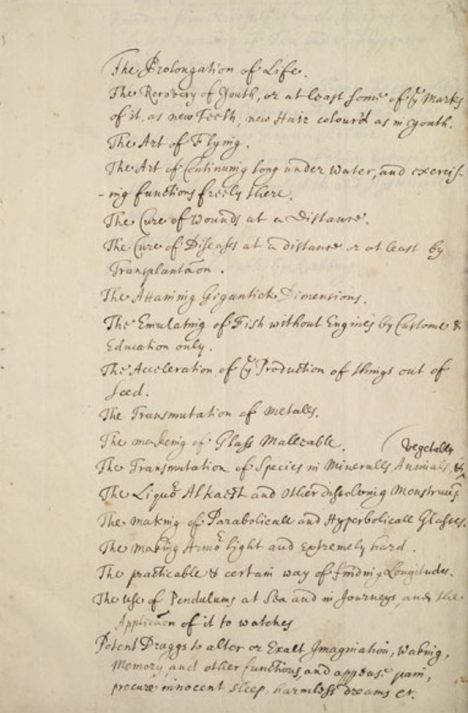 The Prolongation of Life.
The Recovery of Youth, or at least some of yᵉ Marks
of it, as new Teeth, new Hair colour'd as in youth.
The Art of Flying.
The Art of Continuing long under water, and exercis-
-ing functions freely there.
The Cure of Wounds at a Distance.
The Cure of Diseases at a distance or at least by
Transplantaõn.
The Attaining Gigantick Dimensions.
The Emulating of Fish without Engines by Custome &
Education only.
The Acceleration of yᵉ Production of things out of
Seed.
The Transmutation of Metalls.
The makeing of Glass Malleable.
Vegetables
The Transmutation of Species in Mineralls, Animals, &
The Liquiᵈ Alkaest and Other dissolving Menstruums
The making of Parabolicall and Hyperbolicall Glasses.
The making Armoʳ light and extremely hard.
The practicable & certain way of finding Longitudes.
The use of Pendulums at Sea and in Journeys, and the
Applicaõn of it to watches
Potent Druggs to alter or Exalt Imagination, Waking,
Memory, and other functions, and appease pain,
procure innocent sleep, harmless dreams etc.